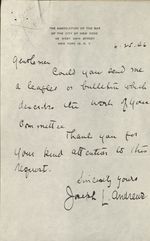 THE ASSOCIATION OF THE BAR
OF THE CITY OF NEW YORK
42 WEST 44TH STREET
NEW YORK 18, N. Y.
Gentlemen
Could you send me
a leaflet or bulletin which
describes the work of your
Committee.
Thank you for
your kind attention to this
request.
Sincerely yours
Joseph L. Andrews